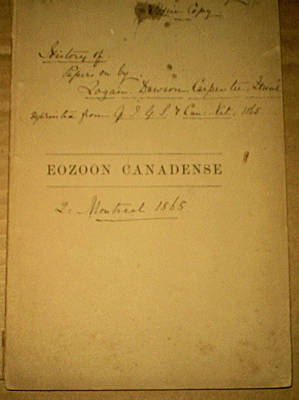 Office Copy
History of
Papers on by
Logan Dawson Carpenter Hunt
reprinted from Q J G S & Can. Nat. 1865
EOZOON CANADENSE
2. Montreal 1865